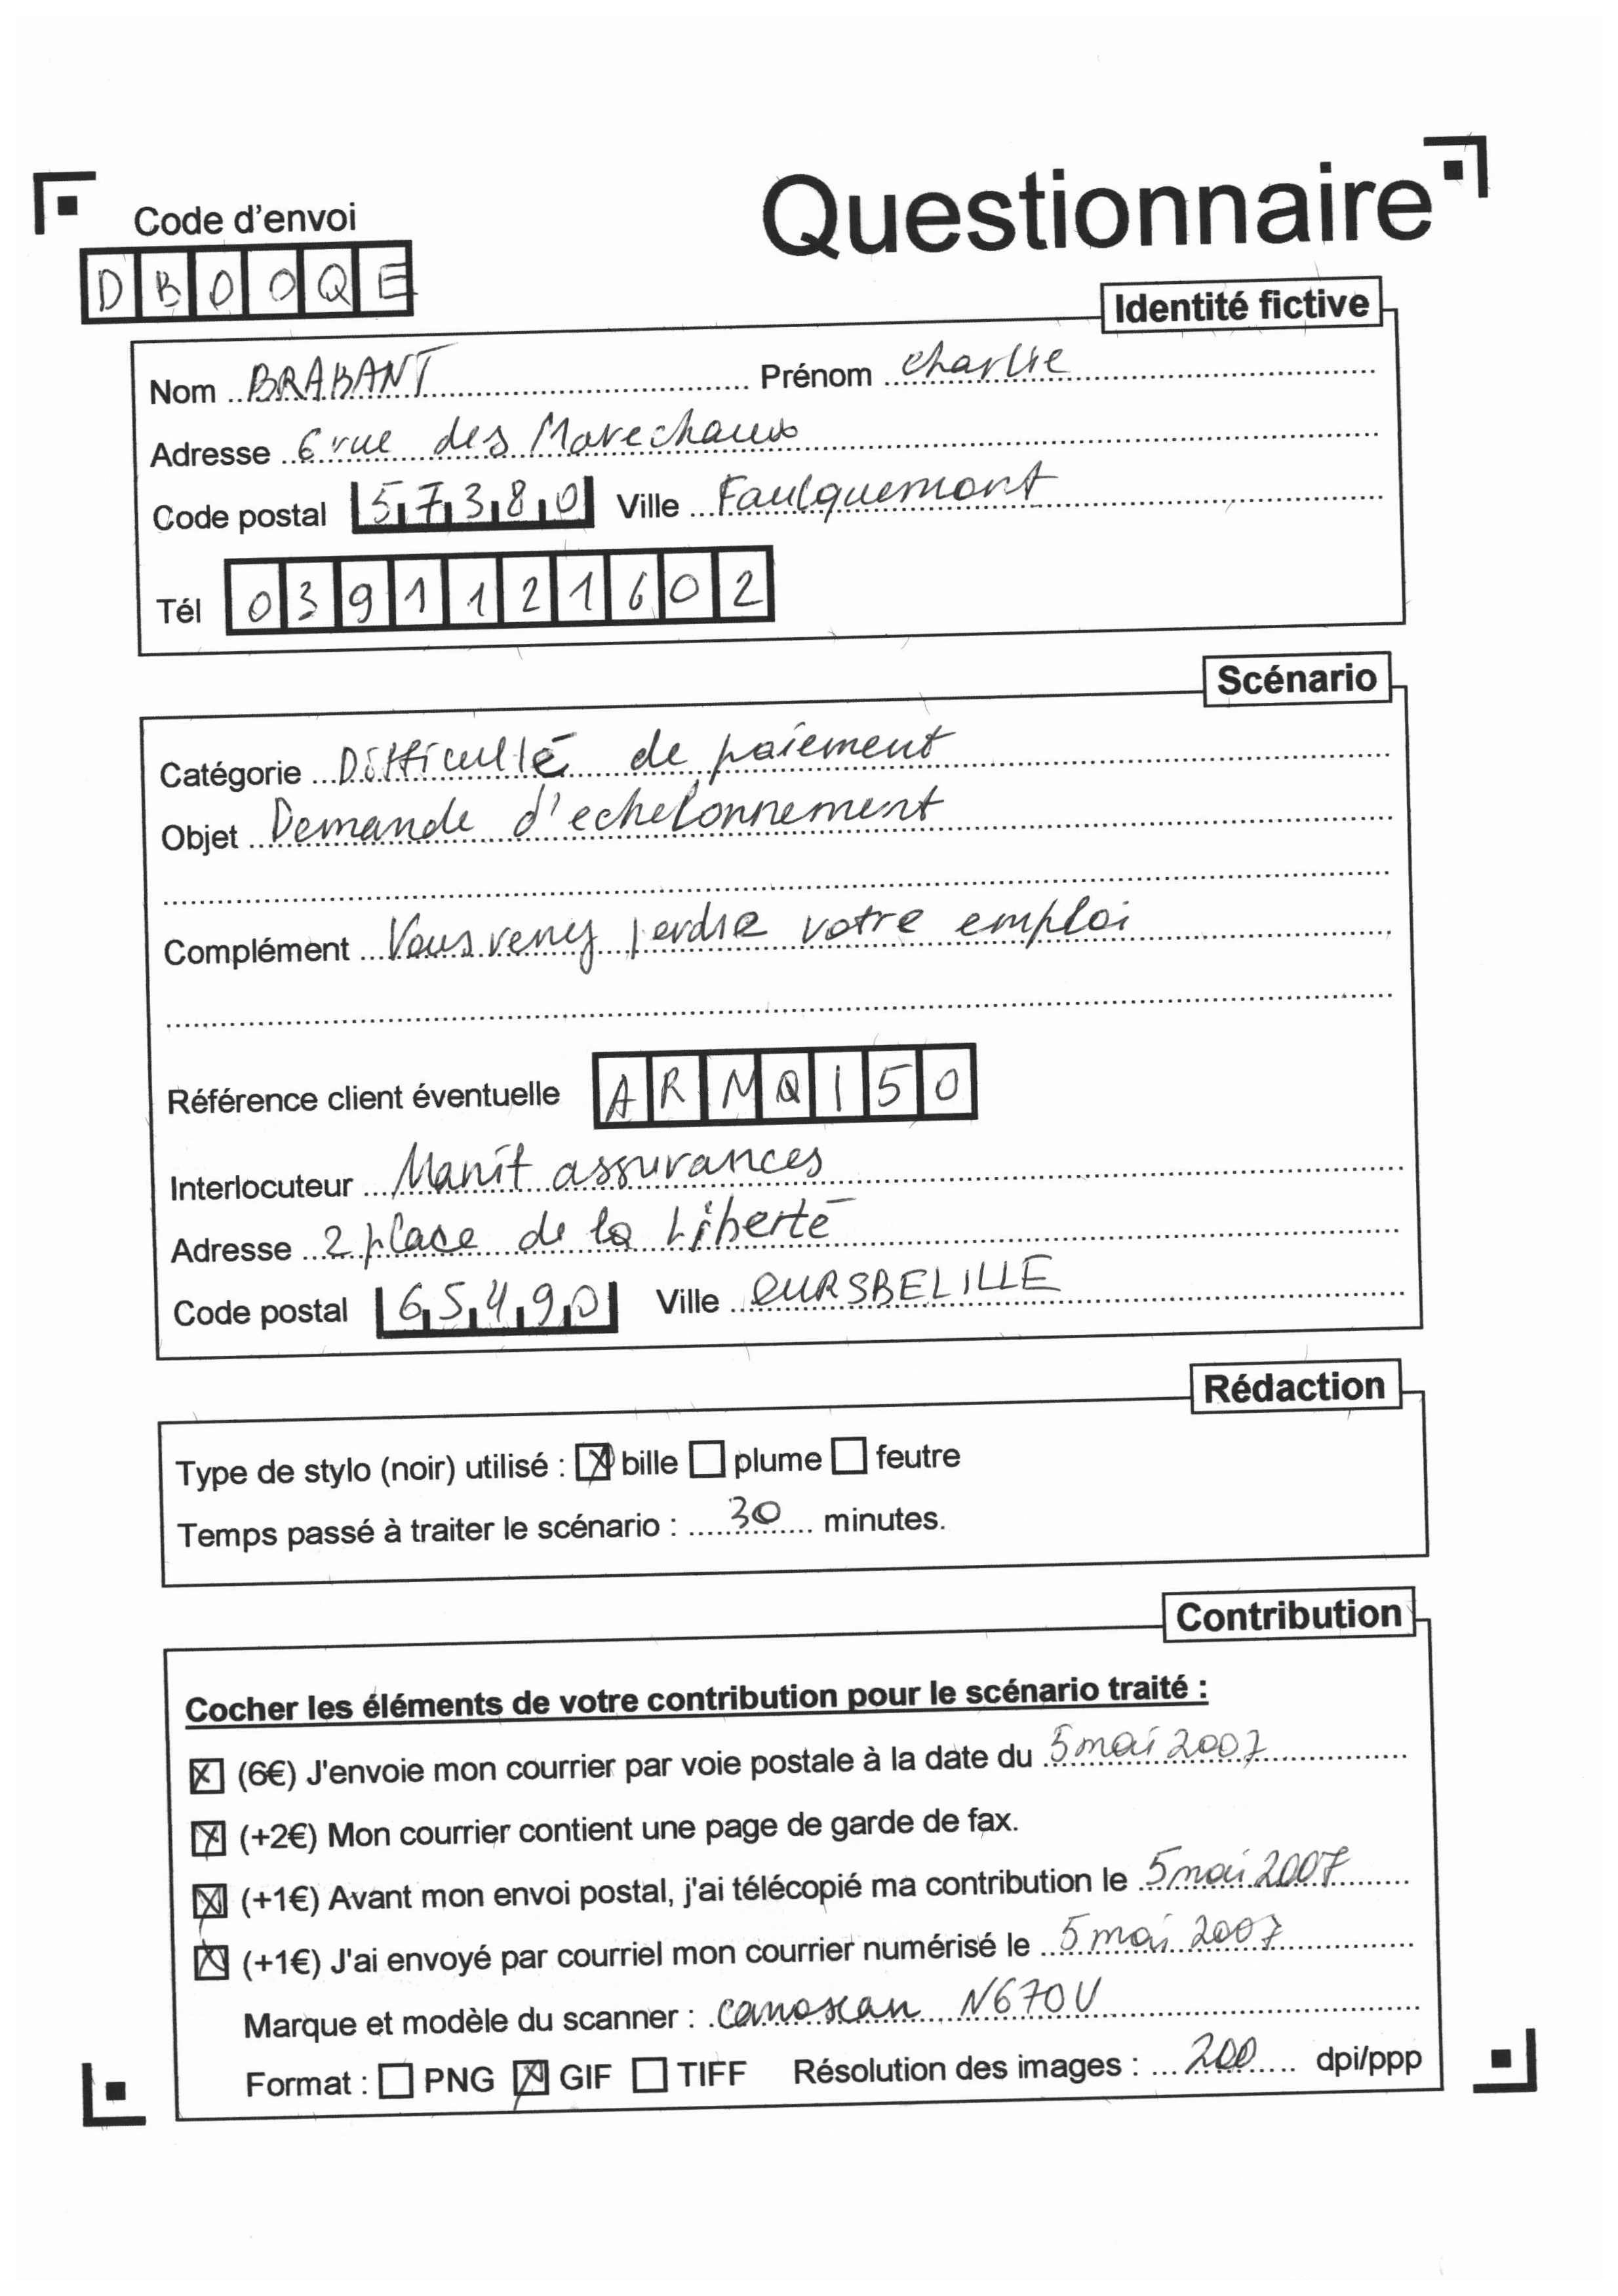 Questionnaire
Code d'envoi
DBOOQE
Identité fictive
Nom BRABANT Prénom Charlie
Adresse 6 rue des Marechaux
Code postal 57380 Ville Faulquemont
Tél 0391121602
Scénario
Catégorie Difficulté de paiement
Objet Demande d'echelonnement
Complément Vous venez perdre votre emploi
Référence client éventuelle ARMQ150
Interlocuteur Manit assurances
Adresse 2 place de la Liberté
Code postal 65490 Ville OURSBELILLE
Rédaction
Type de stylo (noir) utilisé : bille plume feutre
Temps passé à traiter le scénario : 30 minutes.
Contribution
Cocher les éléments de votre contribution pour le scénario traité :
(6€) J'envoie mon courrier par voie postale à la date du 5 mai 2007
(+2€) Mon courrier contient une page de garde de fax.
(+1€) Avant mon envoi postal, j'ai télécopié ma contribution le 5 mai 2007
(+1€) J'ai envoyé par courriel mon courrier numérisé le 5 mai 2007
Marque et modèle du scanner : canoscan N670U
Format : PNG GIF TIFF Résolution des images : 200 dpi/ppp